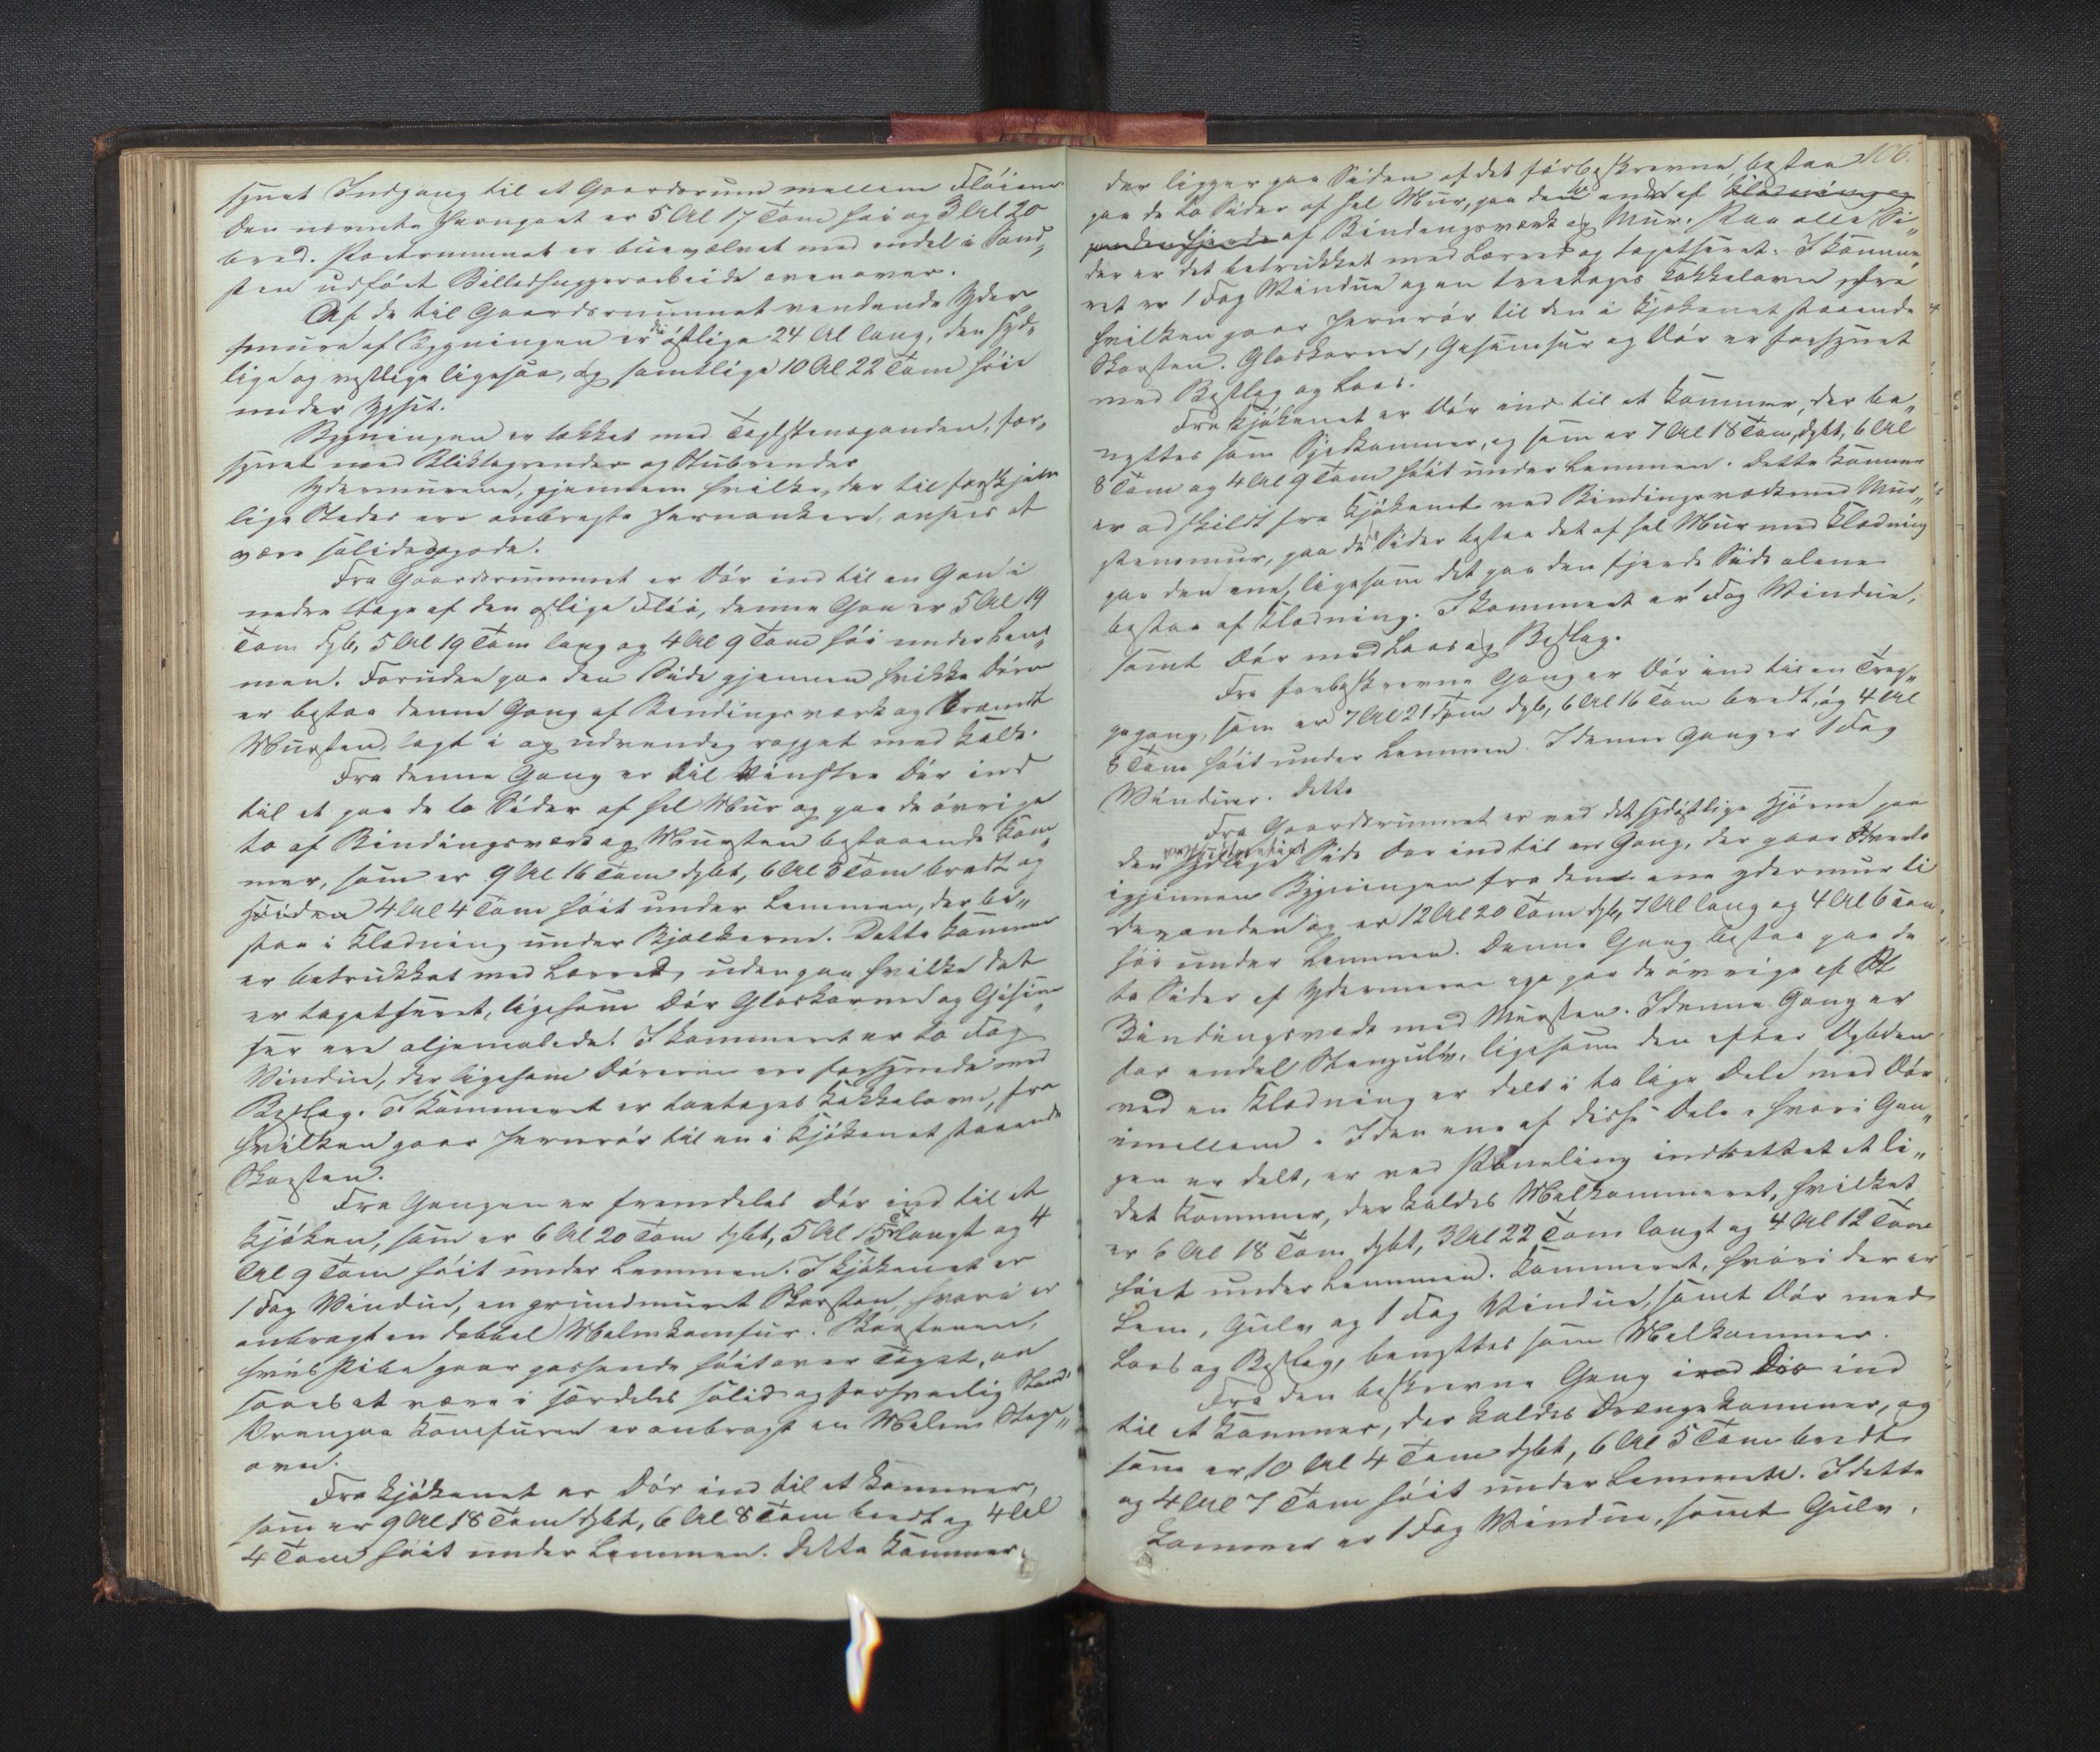 synet Indgang til et Gaardsrum mellem Fløiene.
Den nævnte Jernport er 5 Al 17 Tom høi og 3 Al 20
bred. Portrummet er buevælvet med endel i Sand„
sten udført Billedhuggerarbeide ovenover.
Af de til Gaardsrummet vendende Yder„
mure af Bygningen er den østlige 24 Al lang, den syd„
lige og vestlige ligesaa, og samtlige 10 Al 22 Tom høie
under Gesit.
Bygningen er tækket med Teglstenspander, for„
synet med Bliktagrender og Stubrender
Ydermurene, gjennem hvilke, der til forskjæl„
lige Steder ere anbragte Jernankere, ansees at
være solide og gode.
Fra Gaardsrummet er Dør ind til en Gan i
nedre Etage af den østlige Fløi, denne Gan er 5 Al 14
Tom dyb, 5 Al 19 Tom lang og 4 Al 9 Tom høi under Lem„
men. Foruden paa den Side gjennem hvilke Døren
er bestaa denne Gang af Bindingsværk og brændt
Mursten, lagt i og udvendig rappet med Kalk.
Fra denne Gang er til Vinstre Dør ind
til et paa de to Sider af hel Mur og paa de øvrige
to af Bindingsværk og Mursten bestaaende Kam„
mer, som er 9 Al 16 Tom dybt, 6 Al 8 Tom bredt og
høiden 4 Al 4 Tom høit under Lemmen, der be„
staa i Klædning under Bjælkerne. Dette Kammer
er betrukket med Lærred, uden paa hvilke det
er tapetseret, ligesom Dør Gloskarme og Gesim„
ser ere oljemalede. I Kammeret er to Fag
Vindue, der ligesom Dørene ere forsynede med
Beslag. I Kammeret er toetages Kakkelovn, fra
hvilken gaar Jernrør til en i Kjøkenet staaende
Skorsten.
Fra Gangen er fremdeles Dør ind til et
Kjøken, som er 6 Al 20 Tom dybt, 5 Al 15 T langt og 4
Al 9 Tom høit under Lemmen. I Kjøkenet er
1 Fag Vindue, en grundmuret Skorsten, hvori er
anbragt en dobbel Malmkomfur. Skorstenen,
hvis Pibe gaar passende høit over Taget, an
saaes at være i særdeles solid og forsvarlig Stand
Ovenpaa Komfuren er anbragt en Malm Steg„
oven.
Fra Kjøkenet er Dør ind til et Kammer,
som er 9 Al 18 Tom dybt, 6 Al 8 Tom bredt og 4 Al
4 Tom høit under Lemmen. Dette Kammer,
106.
der ligger paa Siden af det førbeskrevne, bestaa
paa de to Sider af hel Mur, paa den to andre af Klædning og
paa den fjerde af Bindingsværk og Mur. Paa alle Si„
der er det betrukket med Lærred og tapetseret. I Kamme„
ret er 1 Fag Vindue og en treetages Kakkelovn, fra
hvilken gaar Jernrør til den i Kjøkenet staaende
Skorsten. Gloskarme, Gesimser og Dør er forsynet
med Beslag og Laas.
Fra Kjøkenet er Dør ind til et Kammer, der be„
nyttes som Spiskammer, og som er 7 Al 18 Tom dybt, 6 Al
8 Tom og 4 Al 9 Tom høit under Lemmen. Dette Kammer
er adskildt fra Kjøkenet ved Bindingsværk med Mur„
stensmur, paa de Sider bestaa det af hel Mur med Klædning
paa den ene, ligesom det paa den fjerde Side alene
bestaa af Klædning. I Kammeret er Fag Vindue,
samt Dør med Laas og Beslag.
Fra forbeskrevne Gang er Dør ind til en Trap„
pegang, som er 7 Al 21 Tom dyb, 6 Al 16 Tom bredt, og 4 Al
8 Tom høit under Lemmen. I denne Gang er 1 Fag
Vinduer. Dette
Fra Gaardsrummet er ved det sydøstlige Hjørne paa
den sydlige Side Dør ind til en Gang, der gaar tverts
igjennem Bygningen fra den ene ydermur til
den anden og er 12 Al 20 Tom dyb, 7 Al lang og 4 Al 6 Tom
høi under Lemmen. Denne Gang bestaa paa de
to Sider af Ydermurene og paa de øvrige af
Bindingsværk med Mursten. I denne Gang er
for endel Stengulv, ligesom den efter Dybden
ved en Klædning er delt i to lige Dele med Dør
imellem. I den ene af disse Dele, hvori Gan„
gen er delt, er ved Paneling indrettet et li„
det Kammer, der kaldes Melkammeret, hvilket
er 6 Al 18 Tom dybt, 3 Al 22 Tom langt og 4 Al 12 Tom
høit under Lemmen. Kammeret, hvori der er
Lem, Gulv og 1 Fag Vindue, samt Dør med
Laas og Beslag, benyttes som Melkammer.
Fra den beskrevne Gang ind Dør ind
til et Kammer, der kaldes Drengekammer, og
som er 10 Al 4 Tom dybt, 6 Al 5 Tom bredt
og 4 Al 7 Tom høit under Lemmen. I dette
Kammer er 1 Fag Vindue, samt Gulv,